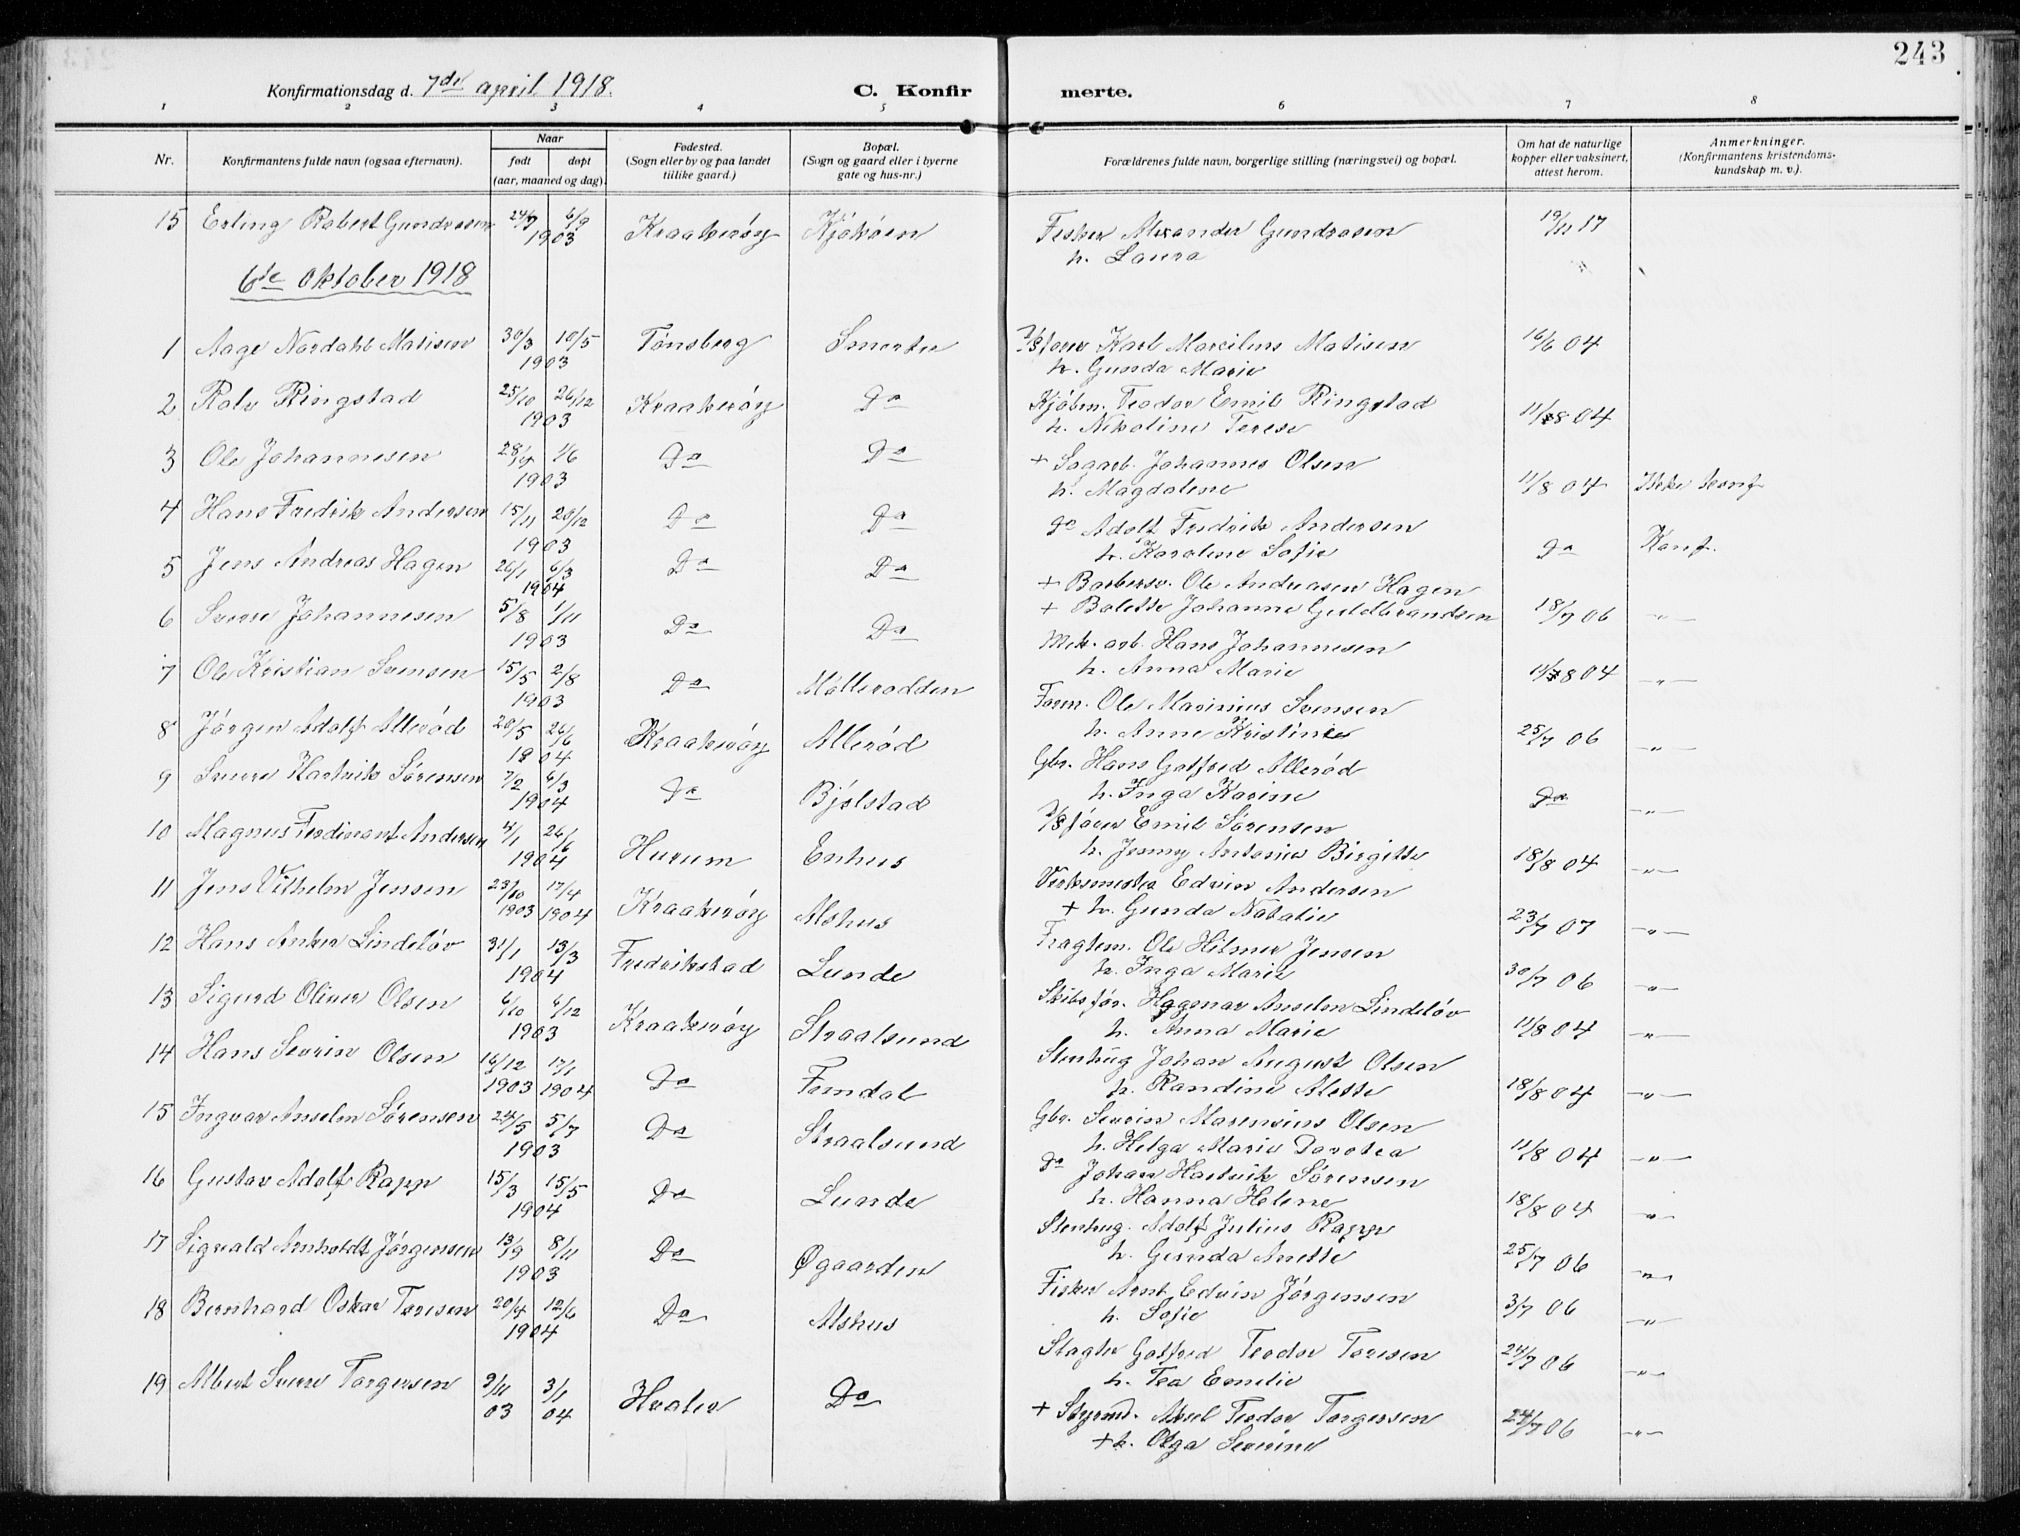 243
Konfirmationsdag d. 7de april 1918. C. Konfir merte.
1 2 3 4 5 6 7 8
Nr. Konfirmantens fulde navn (ogsaa efternavn). Naar født døpt (aar, maaned og dag). Fødested. (Sogn eller by og paa landet tillike gaard.) Bopæl. (Sogn og gaard eller i byerne gate og hus-nr.) Forældrenes fulde navn, borgerlige stilling (næringsvei) og bopæl. Om hat de naturlige kopper eller vaksinert, attest herom. Anmerkninger. (Konfirmantens kristendoms-kundskap m. v.).
15 Erling Robert Gundrosen 24/7 6/9 1903 Kraakerøy Kjøkøen Fisker Alexander Gundrosen 19/11 17
h. Laura
6te oktober 1918
1 Aage Nordahl Matisen 30/3 10/5 1903 Tønsberg Smerten D/S fører Karl Marcilius Matisen 16/6 04
h. Gunda Marie
2 Rolv Ringstad 25/10 26/12 1903 Kraakerøy Do Kjøbm. Teodor Emil Ringstad 11/8 04
h. Nikoline Terese
3 Ole Johannesen 28/4 1/6 1903 Do Do + Sagarb. Johannes Olsen
h. Magdalene 11/8 04 Ikke konf
4 Hans Fredrik Andersen 15/11 20/12 1903 Do Do Do Adolf Fredrik Andersen
h. Karoline Sofie Do Konf.
5 Jens Andreas Hagen 26/1 6/3 1904 Do Do + Barbersv. Ole Andreasen Hagen
+ Bolette Johanne Guldbrandsen 18/7 06 -"-
6 Sverre Johannesen 5/8 1/11 1903 Do Do Mek. arb. Hans Johannesen
h. Anna Marie 11/8 04 -"-
7 Ole Kristian Svensen 15/5 2/8 1903 Do Møllerodden Form. Ole Marinius Svensen
h. Anne Kristine 25/7 06 -"-
8 Jørgen Adolf Allerød 20/5 26/6 1904 Kraakerøy Allerød Gbr. Hans Gotfred Allerød
h. Inga Karine Do -"-
9 Sverre Hartvik Sørensen 7/2 6/3 1904 Do Bjølstad D/S fører Emil Sørensen
h. Jenny Antonie Birgitte 18/8 04 -"-
10 Magnus Ferdinant Andersen 4/1 26/6 1904 Hurum Enhus Verksmester Edvin Andersen
+ h. Gunda Natalie 23/7 07 -"-
11 Jens Vilhelm Jensen 23/10 1903 17/4 1904 Kraakerøy Alshus Fragtem. Ole Hilmer Jensen
h. Inga Marie 30/7 06 -"-
12 Hans Anker Lindeløv 31/1 13/3 1904 Fredrikstad Lunde Skibsfør. Hagemar Anselm Lindeløv
h. Anna Marie 11/8 04 -"-
13 Sigurd Oliver Olsen 6/10 6/12 1903 Kraakerøy Straalsund Stenhug Johan August Olsen
h. Randine Alette 18/8 04 -"-
14 Hans Severin Olsen 16/12 1903 17/1 1904 Do Femdal Gbr. Severin Marensius Olsen
h. Helga Marie Dorotea 11/8 04 -"-
15 Ingvar Anselm Sørensen 24/5 5/7 1903 Do Straalsund Do Johan Hartvik Sørensen
h. Hanna Helene 18/8 04 -"-
16 Gustav Adolf Rapp 15/3 15/5 1904 Do Lunde Stenhug. Adolf Julius Rapp
h. Gunda Anette 25/7 06 -"-
17 Sigvald Arnholdt Jørgensen 13/9 8/11 1903 Do Øgaarden Fisker Arnt Edvin Jørgensen
h. Sofie 3/7 06 -"-
18 Bernhard Oskar Toresen 20/4 12/6 1904 Do Alshus Slagter Gotfred Teodor Toresen 24/7 06 -"-
h. Tea Emilie
19 Albert Sverre Torgersen 9/11 03 3/1 04 Hvaler Do + Styrmd. Aksel Teodor Torgersen 24/7 06 -"-
+ h. Olga Severine